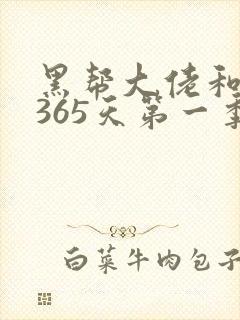 黑帮大佬和
365天第一季
白菜牛肉包子